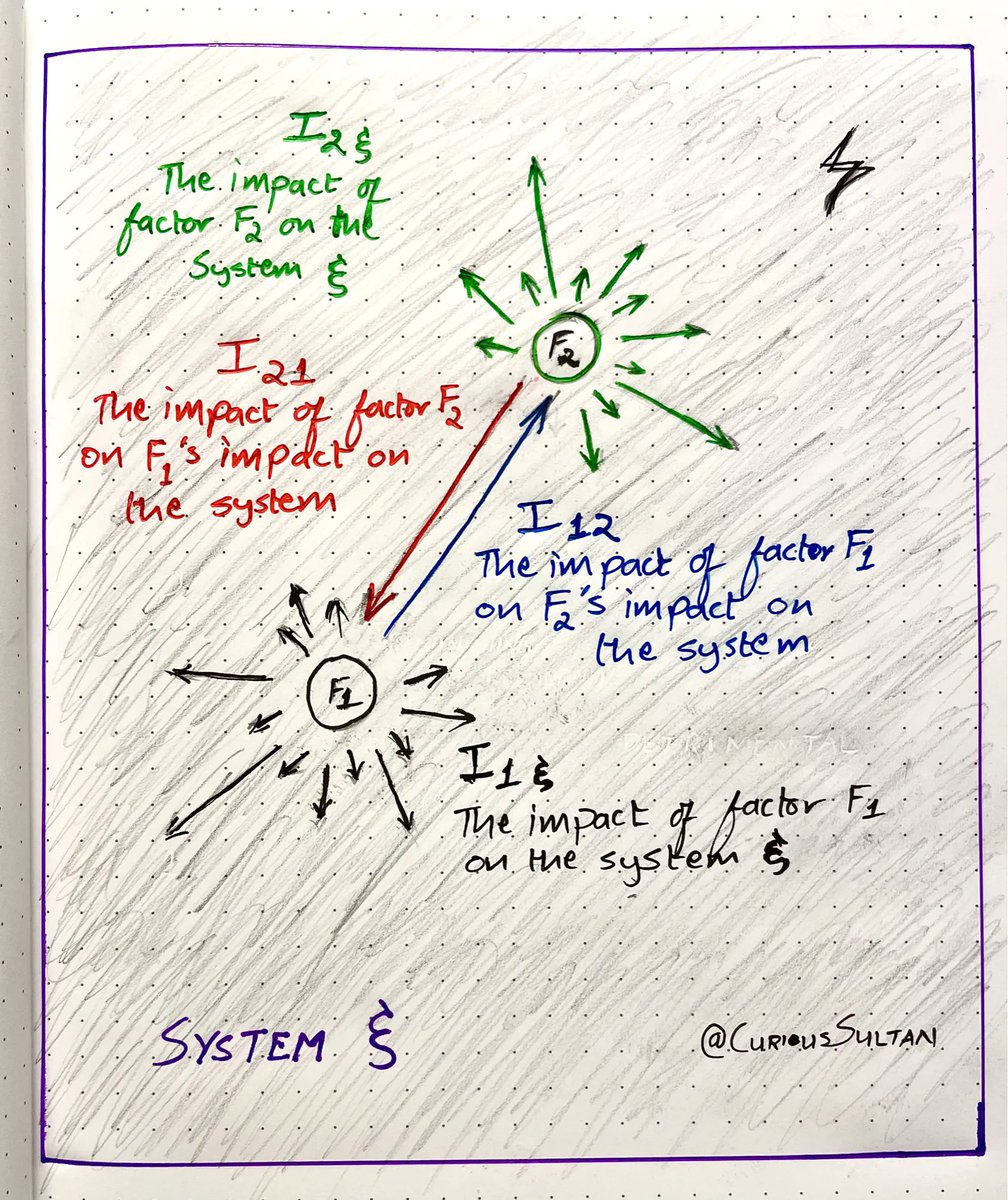 I₂ξ
The impact of
factor F₂ on the
System ξ
F₂
I₂₁
The impact of factor F₂
on F₁'s impact on
the system
I₁₂
The impact of factor F₁
on F₂'s impact on
the system
F₁
I₁ξ
The impact of factor F₁
on the system ξ
SYSTEM ξ
@CURIOUSSULTAN